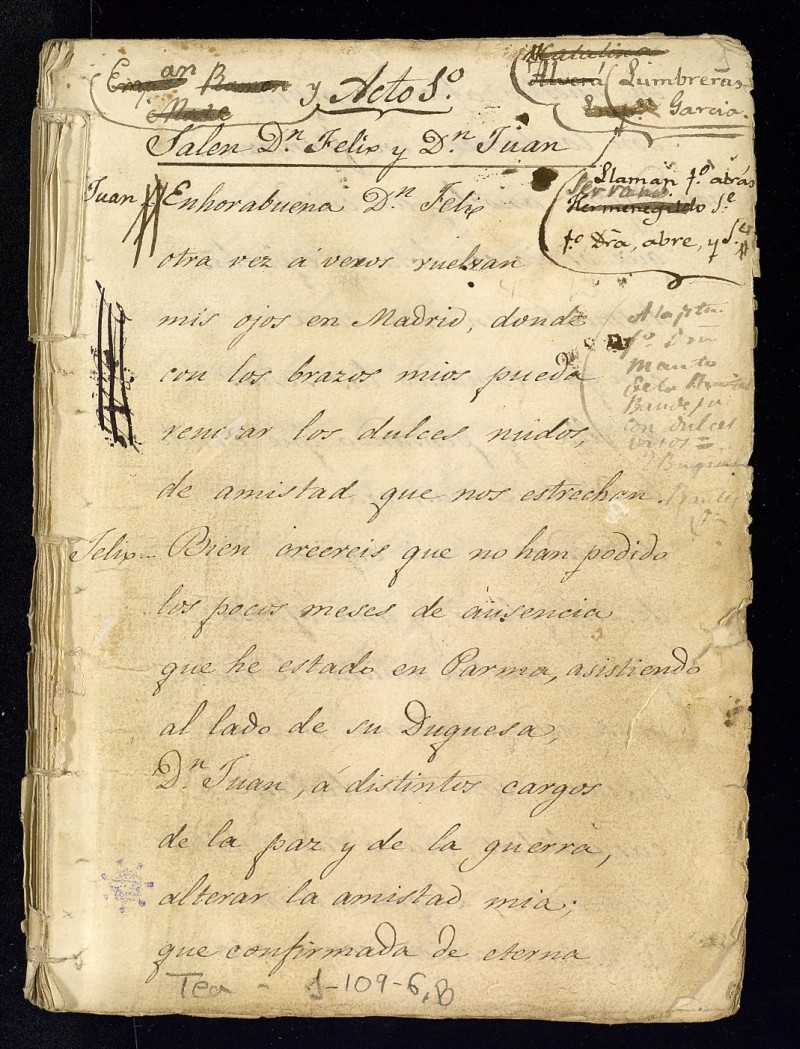 y Acto 1º
Lumbreras
Garcia.
Salen Dⁿ Felix y Dⁿ Juan
Llaman 1º atrás
Serrano
Hermenegildo Sᵉ
1º Dra, abre, y Sᵉ
Juan Enhorabuena Dⁿ Felix
otra vez á veros vuelvan
mis ojos en Madrid, donde
con los brazos mios pueda
renovar los dulces nudos,
de amistad que nos estrechan.
Felix Bien creereis que no han podido
los pocos meses de ausencia
que he estado en Parma, asistiendo
al lado de su Duquesa,
Dⁿ Juan, á distintos cargos
de la paz y de la guerra,
alterar la amistad mia;
que confirmada de eterna
A la
Manto
con dulces
vasos =
Tea - 1-109-6, B